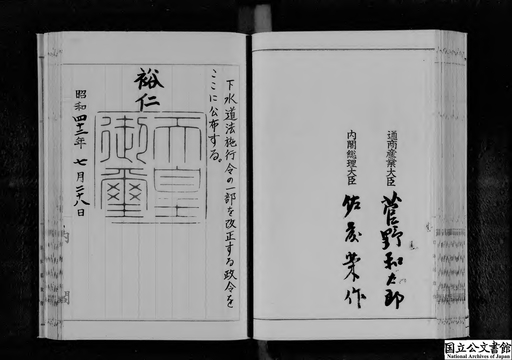 通商産業大臣 菅野和太郎
内閣総理大臣 佐藤榮作
下水道法施行令の一部を改正する政令を
ここに公布する。
裕仁
天皇
御璽
昭和四十二年 七月二十八日
国立公文書館
National Archives of Japan